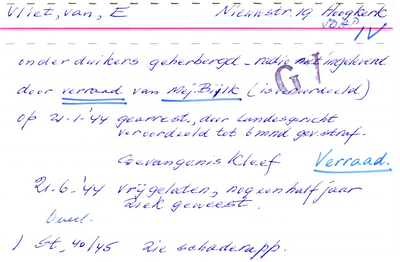 Vliet, van, E Nieuwstr. 19 Hoogkerk
IV
onderduikers geherbergd - radio niet ingeleverd
G
door verraad van Mej. Bijlk (is veroordeeld)
op 21-1-'44 gearrest. door Landesgericht
veroordeeld tot 6 mnd gev. straf.
Gevangenis Kleef Verraad.
21-6-'44 vrijgelaten, nog een half jaar
ziek geweest.
) St. 40/45 zie schaderapp.